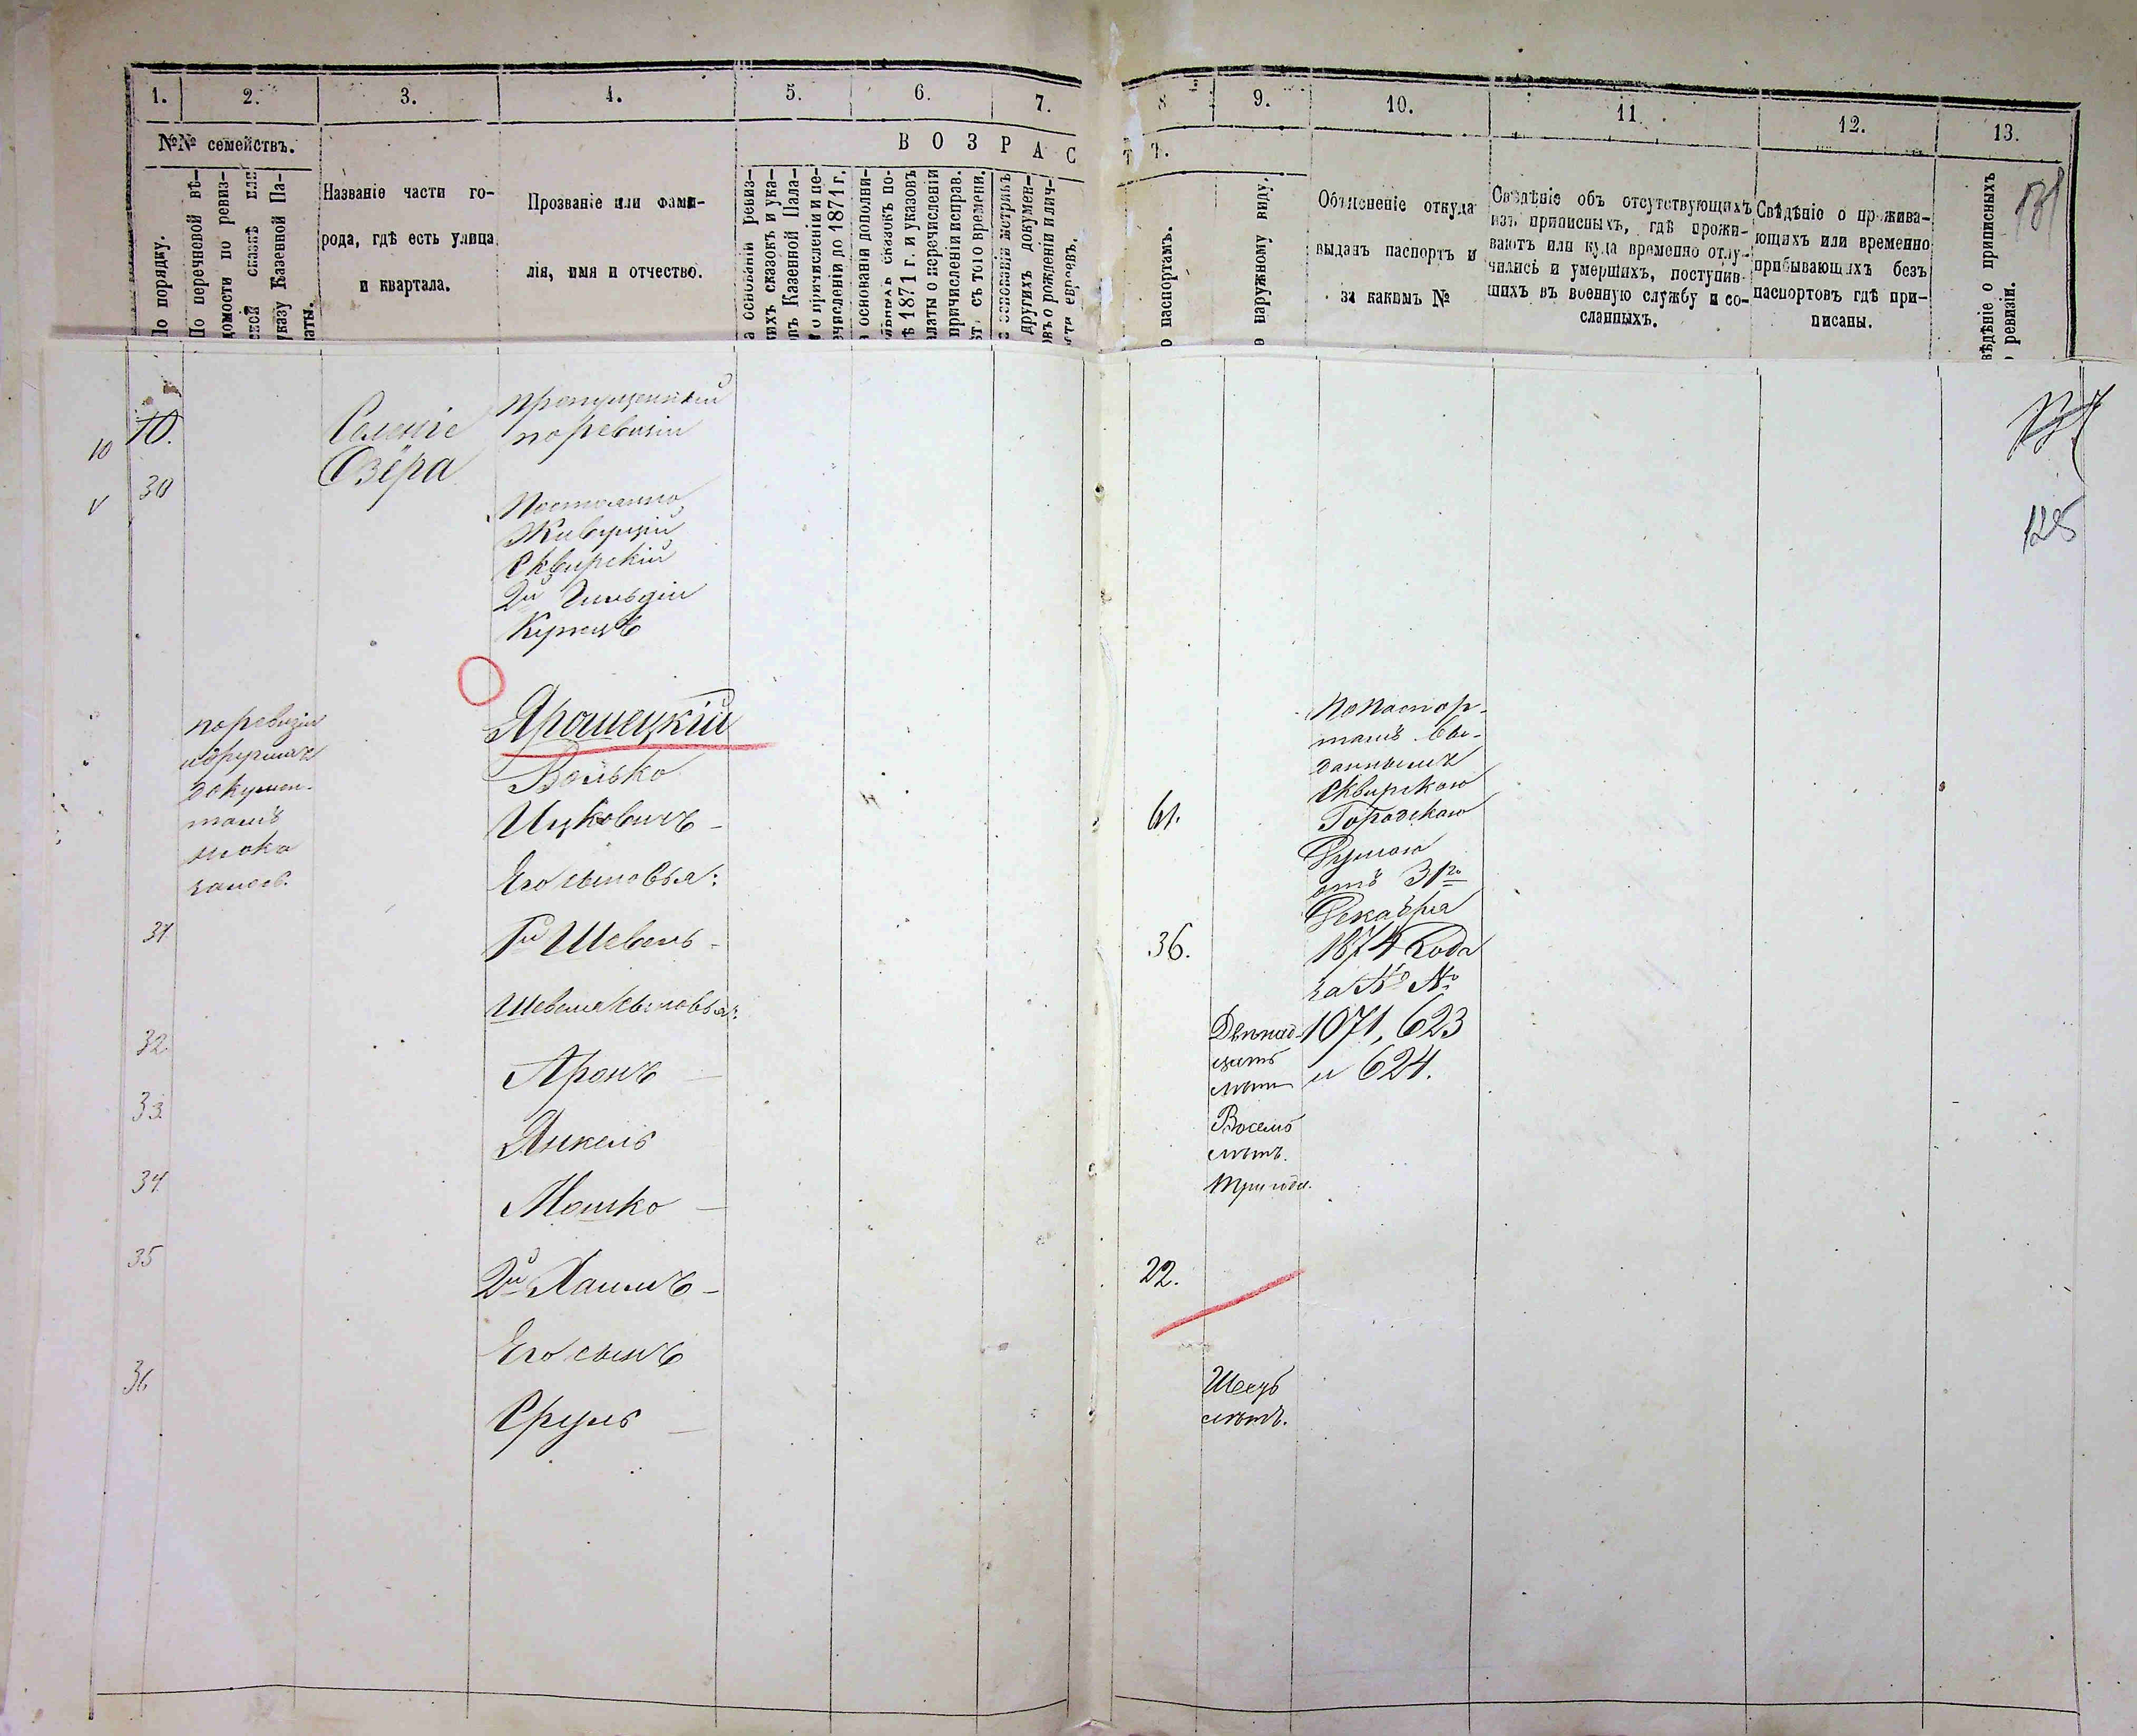 1. 2. 3. 4. 5. 6. 7. 8 9. 10. 11. 12. 13.
№№ семействъ.
В О З Р А С Т Ъ.
По порядку.
По перечневой вѣ-
домости по ревиз-
ской сказкѣ или
указу Казенной Па-
латы.
Названіе части го-
рода, гдѣ есть улица
и квартала.
Прозваніе или фами-
лія, имя и отчество.
а основаніи ревиз-
кихъ сказокъ и ука-
въ Казенной Пала-
о причисленіи и пе-
ечисленіи до 1871 г.
основаніи дополни-
ѣ 1871 г. и указовъ
алаты о перечисленіи
причисленіи исправ.
съ того времени.
основаніи метрикъ
другихъ докумен-
овъ о рожденіи и лич-
сти евреевъ.
о паспортамъ.
о наружному виду.
Объясненіе откуда
выданъ паспортъ и
за какимъ №
Свѣдѣніе объ отсутствующихъ
изъ приписныхъ, гдѣ прожи-
ваютъ или куда временно отлу-
чились и умершихъ, поступив-
шихъ въ военную службу и со-
сланныхъ.
Свѣдѣніе о прожива-
ющихъ или временно
прибывающихъ безъ
паспортовъ гдѣ при-
писаны.
вѣдѣніе о приписныхъ
о ревизіи.
131
10
10.
30
Селеніе
Озёра
Пропущенный
по ревизіи
Постоянно
Живущій
Сквирскій
2й Гильдіи
Купецъ
125
по ревизіи
и другимъ
докумен-
тамъ
Ярошецкій
Волько
Ицковичъ
61.
По паспор-
тамъ вы-
даннымъ
Сквирскою
Городскою
Думою
отъ 31го
Декабря
1874 Года
за №№
1071, 623
и 624.
Его сыновья:
31
1й Шевель
36.
Шевеля сыновья:
32
Аронъ
Двѣнад-
цать
лѣтъ
33.
Янкель
Восемь
лѣтъ.
34
Мошко
Три года.
35
2й Хаимъ
22.
Его сынъ
36
Сруль
Шесть
лѣтъ.